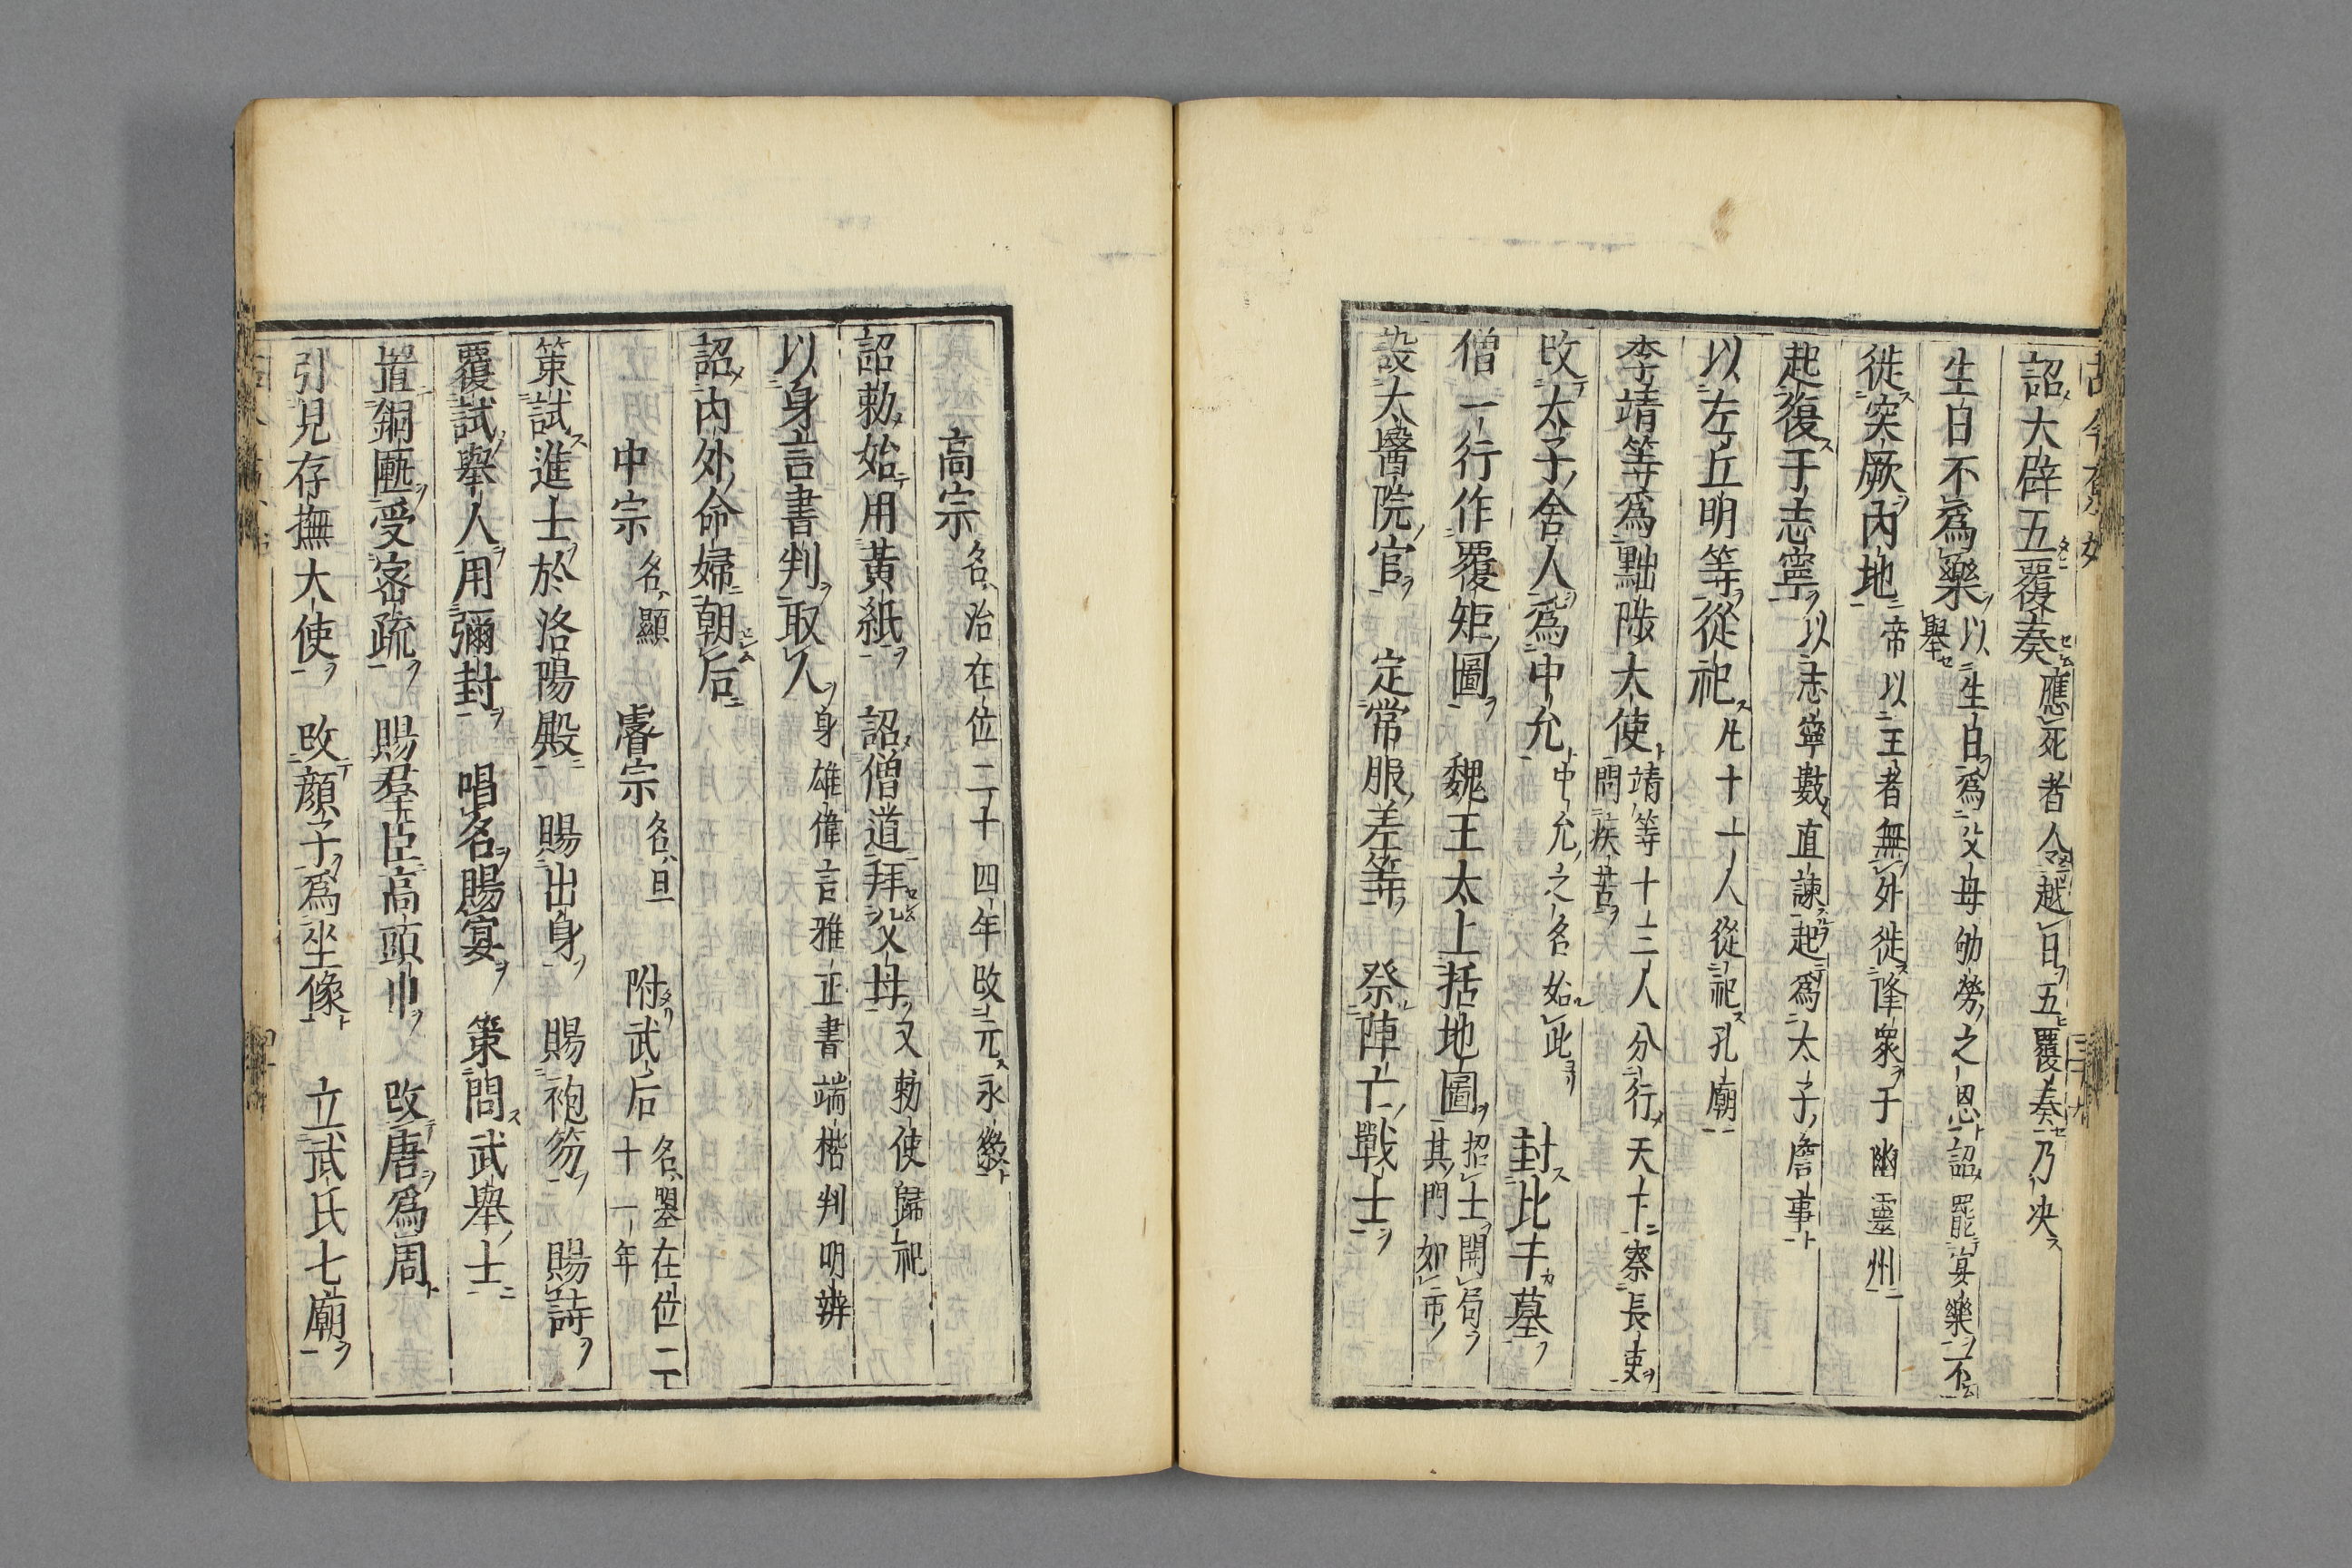 詔大辟五覆奏應死者令越日五覆奏乃决
生日不為樂以生日為父母劬勞之恩詔罷宴樂不舉
徙突厥内地帝以王者無外徙降衆于幽靈州
起復于志寧以志寧數直諫起為太子詹事
以左丘明等從祀凡十十人從祀孔廟
李靖等為黜陟大使靖等十三人分行天下察長吏問疾苦
改太子舍人為中允中允之名始此 封比干墓
僧一行作覆矩圖 魏王太上括地圖招士開局其門如市
設太醫院官 定常服差等 祭陣亡戰士
高宗名治在位三十四年改元永徽
詔勅始用黃紙 詔僧道拜父母又勅使歸祀
以身言書判取人身雄偉言雅正書端楷判明辨
詔内外命婦朝后
中宗名顯 睿宗名旦 附武后名曌在位二十一年
策試進士於洛陽殿 賜出身 賜袍笏 賜詩
覆試舉人用彌封 唱名賜宴 策問武舉士
置銅匭受密疏 賜羣臣高頭巾 改唐為周
引見存撫大使 改顔子為坐像 立武氏七廟